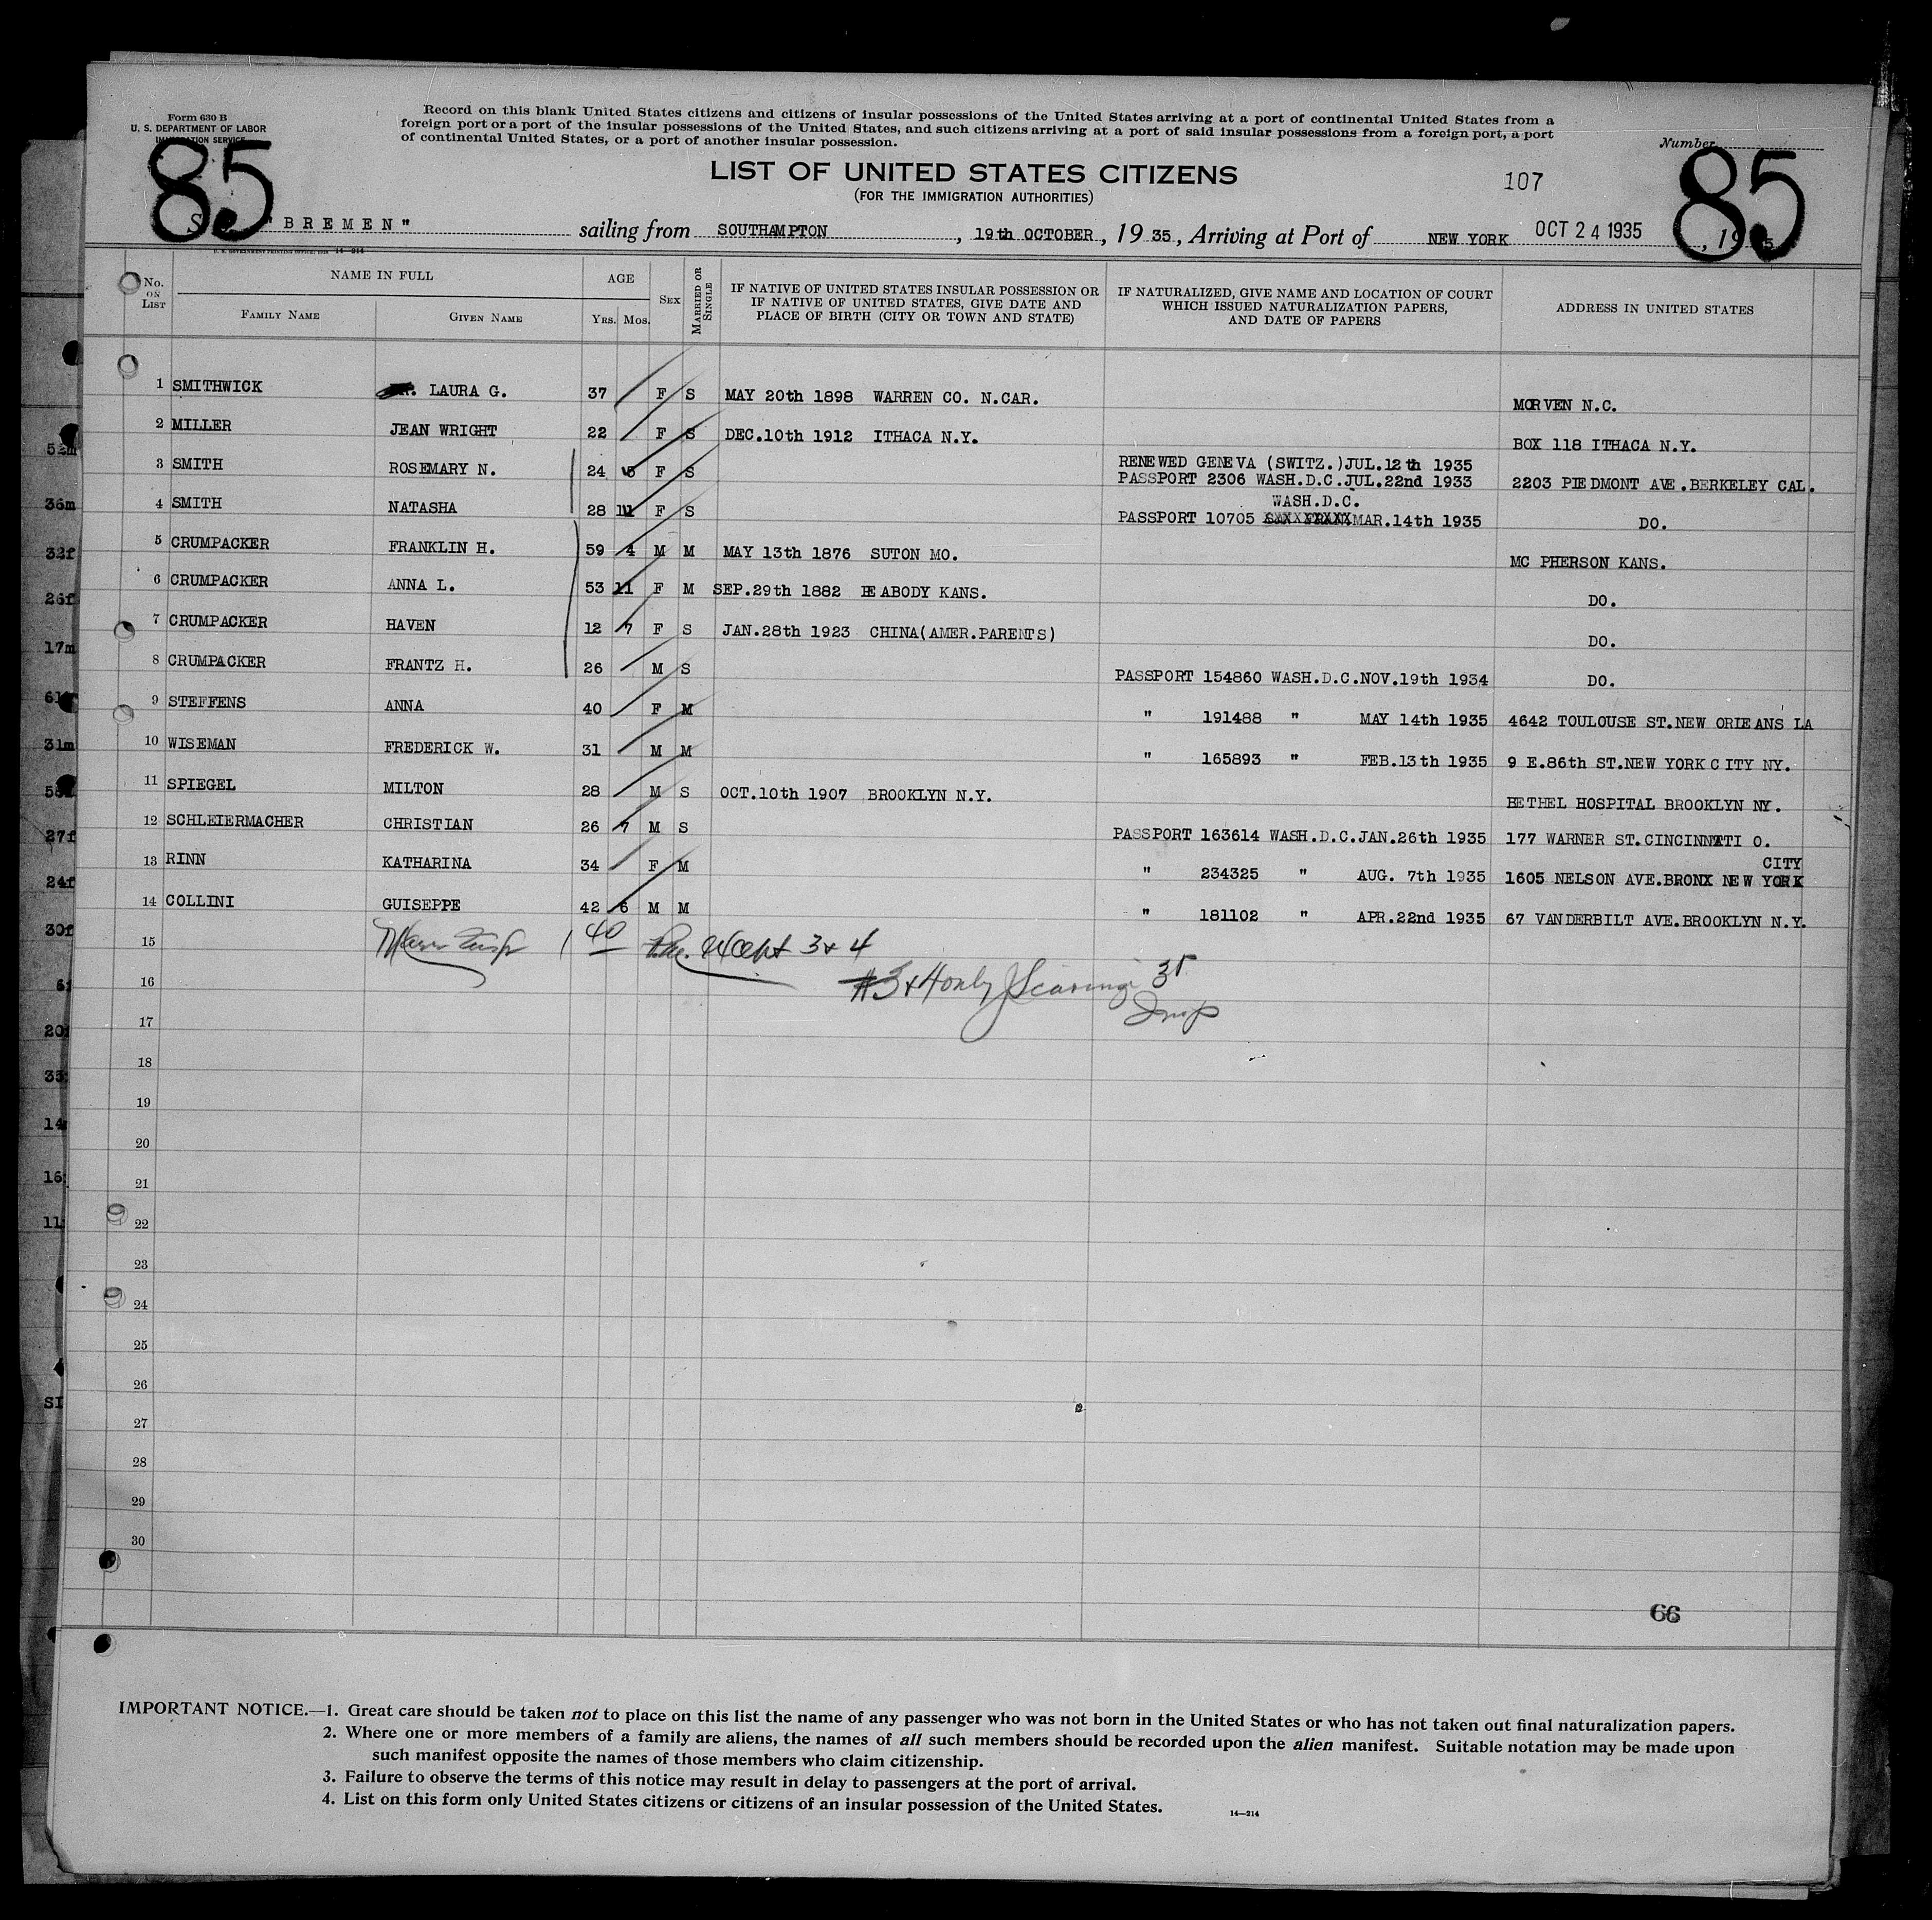 Form 630 B
U. S. DEPARTMENT OF LABOR
IMMIGRATION SERVICE
Record on this blank United States citizens and citizens of insular possessions of the United States arriving at a port of continental United States from a
foreign port or a port of the insular possessions of the United States, and such citizens arriving at a port of said insular possessions from a foreign port, a port
of continental United States, or a port of another insular possession.
Number
85
85
LIST OF UNITED STATES CITIZENS
(FOR THE IMMIGRATION AUTHORITIES)
107
"BREMEN" sailing from SOUTHAMPTON, 19th OCTOBER, 1935, Arriving at Port of NEW YORK OCT 24 1935, 19
U. S. GOVERNMENT PRINTING OFFICE 14-214
No. ON LIST
NAME IN FULL
FAMILY NAME
GIVEN NAME
AGE
YRS. MOS.
SEX
MARRIED OR SINGLE
IF NATIVE OF UNITED STATES INSULAR POSSESSION OR
IF NATIVE OF UNITED STATES, GIVE DATE AND
PLACE OF BIRTH (CITY OR TOWN AND STATE)
IF NATURALIZED, GIVE NAME AND LOCATION OF COURT
WHICH ISSUED NATURALIZATION PAPERS,
AND DATE OF PAPERS
ADDRESS IN UNITED STATES
1 SMITHWICK LAURA G. 37 F S MAY 20th 1898 WARREN CO. N.CAR. MORVEN N.C.
2 MILLER JEAN WRIGHT 22 F S DEC.10th 1912 ITHACA N.Y. BOX 118 ITHACA N.Y.
3 SMITH ROSEMARY N. 24 5 F S RENEWED GENEVA (SWITZ.)JUL.12th 1935
PASSPORT 2306 WASH.D.C.JUL.22nd 1933 2203 PIEDMONT AVE.BERKELEY CAL.
WASH.D.C.
4 SMITH NATASHA 28 11 F S PASSPORT 10705 MAR.14th 1935 DO.
5 CRUMPACKER FRANKLIN H. 59 4 M M MAY 13th 1876 SUTON MO. MC PHERSON KANS.
6 CRUMPACKER ANNA L. 53 11 F M SEP.29th 1882 PEABODY KANS. DO.
7 CRUMPACKER HAVEN 12 7 F S JAN.28th 1923 CHINA(AMER.PARENTS) DO.
8 CRUMPACKER FRANTZ H. 26 M S PASSPORT 154860 WASH.D.C.NOV.19th 1934 DO.
9 STEFFENS ANNA 40 F M " 191488 " MAY 14th 1935 4642 TOULOUSE ST.NEW ORLEANS LA
10 WISEMAN FREDERICK W. 31 M M " 165893 " FEB.13th 1935 9 E.86th ST.NEW YORK CITY NY.
11 SPIEGEL MILTON 28 M S OCT.10th 1907 BROOKLYN N.Y. BETHEL HOSPITAL BROOKLYN NY.
12 SCHLEIERMACHER CHRISTIAN 26 7 M S PASSPORT 163614 WASH.D.C.JAN.26th 1935 177 WARNER ST.CINCINNATI O.
CITY
13 RINN KATHARINA 34 F M " 234325 " AUG. 7th 1935 1605 NELSON AVE.BRONX NEW YORK
14 COLLINI GUISEPPE 42 6 M M " 181102 " APR.22nd 1935 67 VANDERBILT AVE.BROOKLYN N.Y.
15 40 3 & 4
16 #3 & 4 only
Insp
17
18
19
20
21
22
23
24
25
26
27
28
29
30
52m
36m
32f
26f
17m
31m
27f
24f
30f
66
IMPORTANT NOTICE.—1. Great care should be taken not to place on this list the name of any passenger who was not born in the United States or who has not taken out final naturalization papers.
2. Where one or more members of a family are aliens, the names of all such members should be recorded upon the alien manifest. Suitable notation may be made upon
such manifest opposite the names of those members who claim citizenship.
3. Failure to observe the terms of this notice may result in delay to passengers at the port of arrival.
4. List on this form only United States citizens or citizens of an insular possession of the United States.
14—214